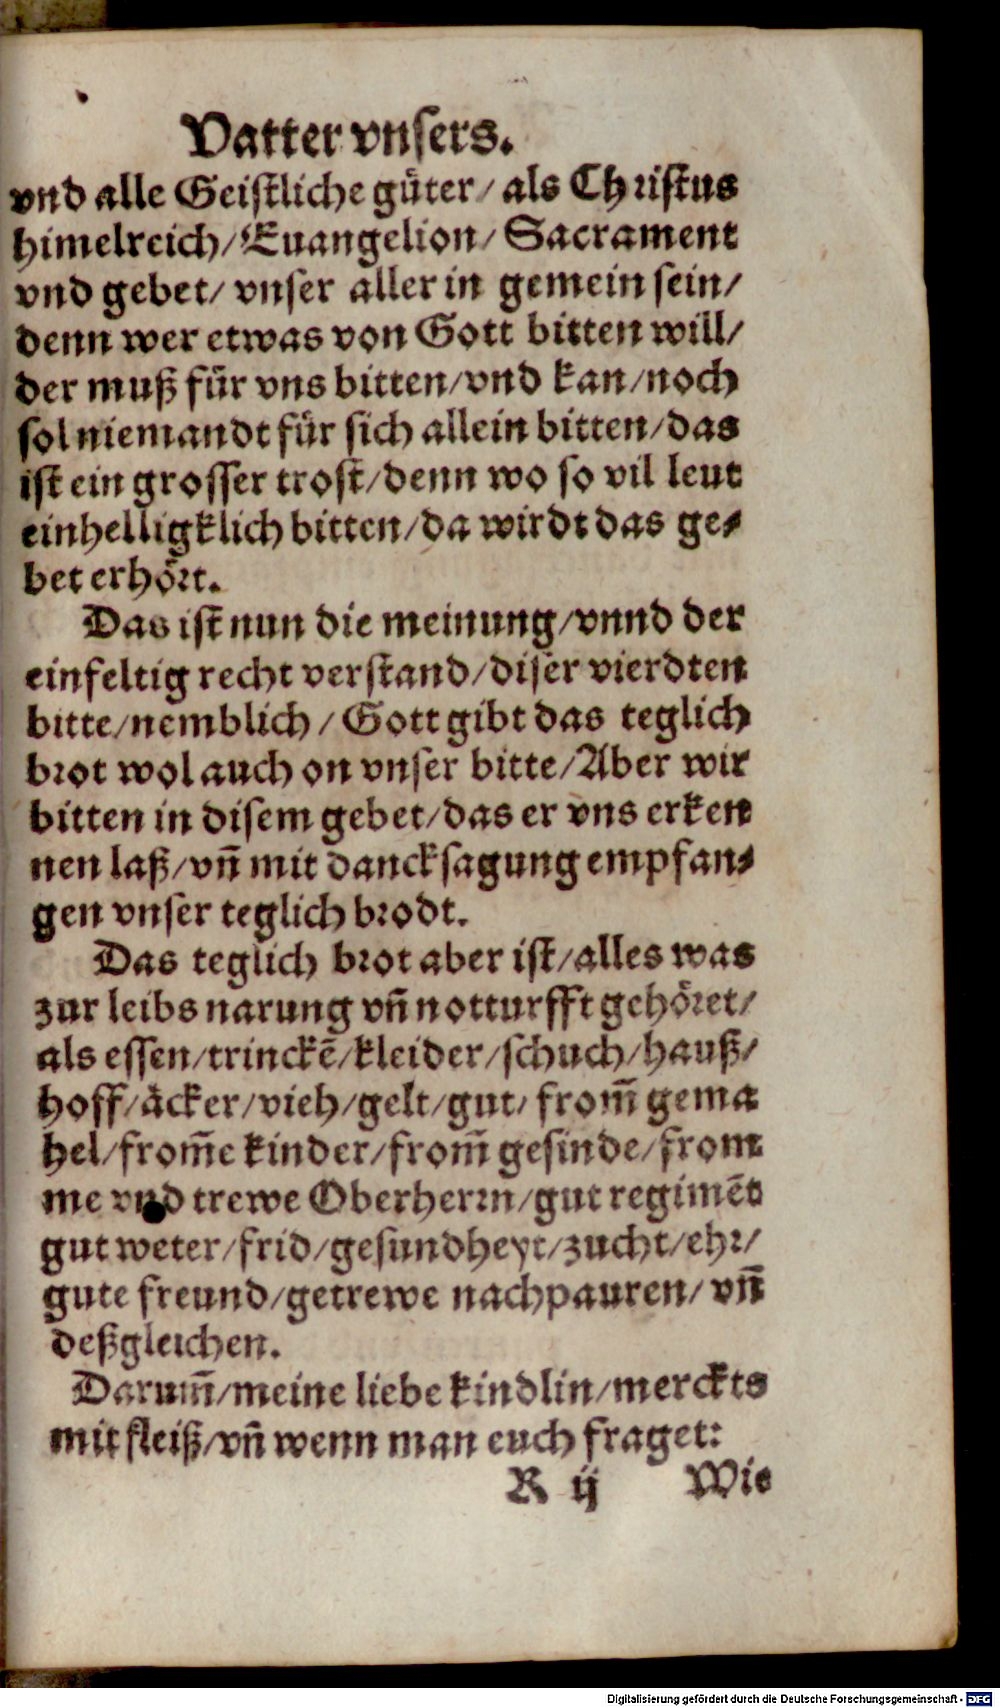 Vatter vnsers.
vnd alle Geistliche güter/ als Christus
himelreich/ Euangelion/ Sacrament
vnd gebet/ vnser aller in gemein sein/
denn wer etwas von Gott bitten will/
der muß für vns bitten/ vnd kan/ noch
sol niemandt für sich allein bitten/ das
ist ein grosser trost/ denn wo so vil leut
einhelligklich bitten/ da wirdt das ge⸗
bet erhört.
Das ist nun die meinung/ vnnd der
einfeltig recht verstand/ diser vierdten
bitte/ nemblich/ Gott gibt das teglich
brot wol auch on vnser bitte/ Aber wir
bitten in disem gebet/ das er vns erken
nen laß/ vñ mit dancksagung empfan⸗
gen vnser teglich brodt.
Das teglich brot aber ist/ alles was
zur leibs narung vñ notturfft gehöret/
als essen/ trinckē/ kleider/ schuch/ hauß/
hoff/ äcker/ vieh/ gelt/ gut/ from̃ gema
hel/ from̃e kinder/ from̃ gesinde/ from
me vnd trewe Oberherrn/ gut regimēt
gut weter/ frid/ gesundheyt/ zucht/ ehr/
gute freund/ getrewe nachpauren/ vñ
deßgleichen.
Darum̃/ meine liebe kindlin/ merckts
mit fleiß/ vñ wenn man euch fraget:
R ij Wie
Digitalisierung gefördert durch die Deutsche Forschungsgemeinschaft - DFG